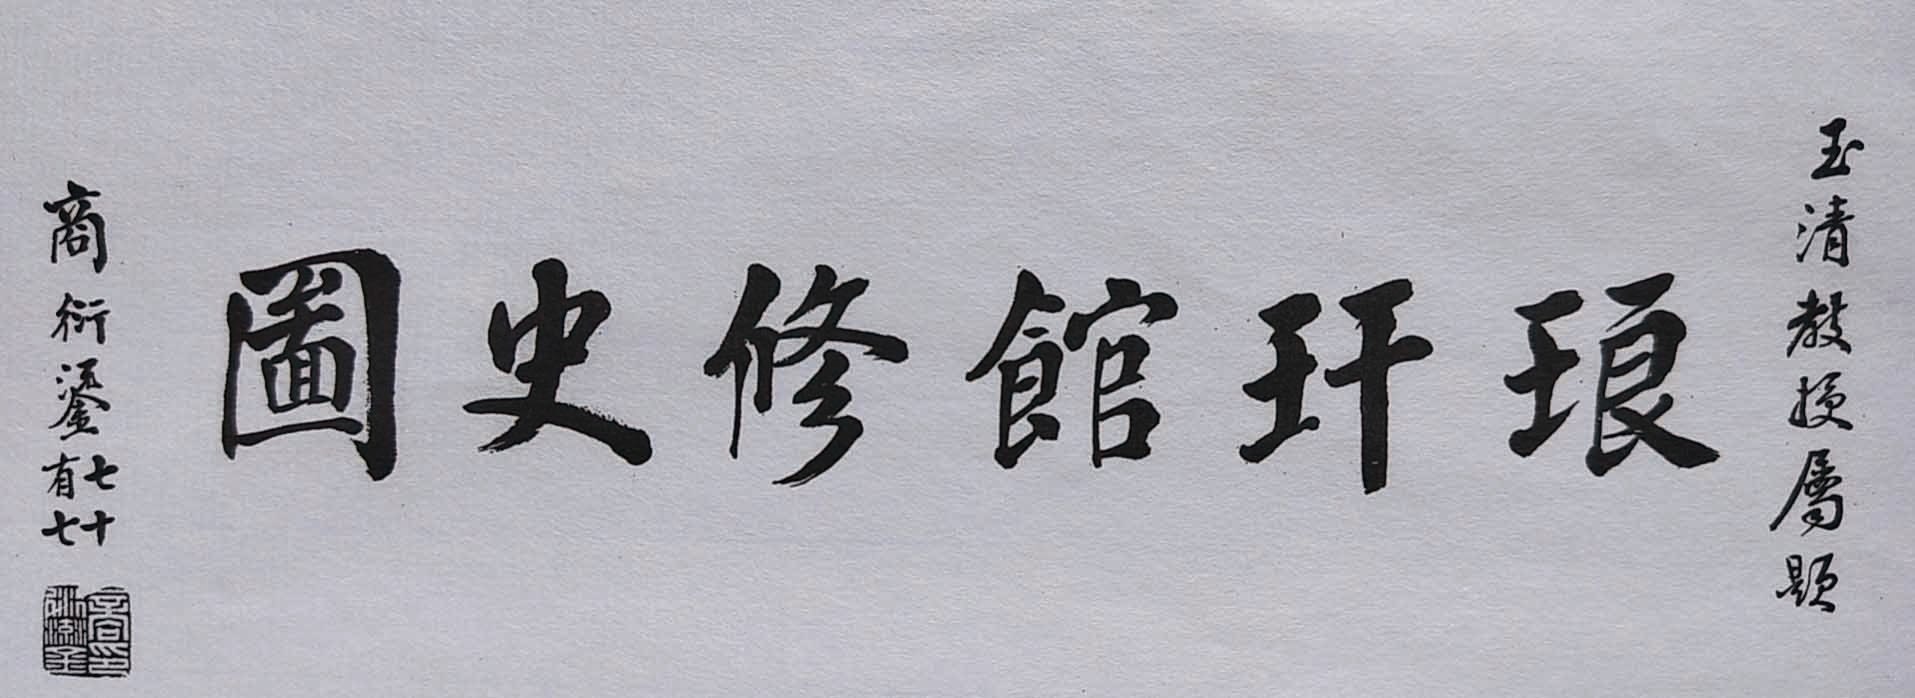 玉清教授屬題
琅玕館修史圖
商衍鎏七十有七